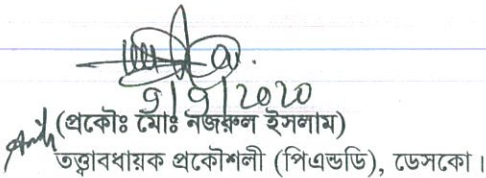 9/9/2020
(প্রকৌঃ মোঃ নজরুল ইসলাম)
তত্ত্বাবধায়ক প্রকৌশলী (পিএন্ডডি), ডেসকো।